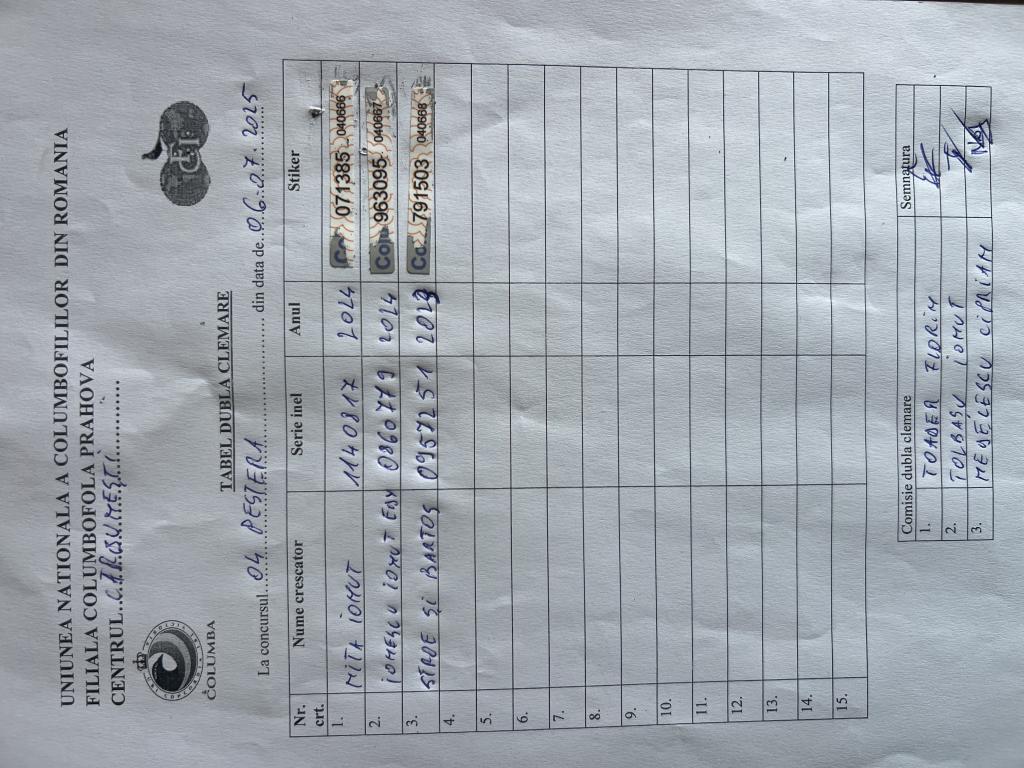 UNIUNEA NATIONALA A COLUMBOFILILOR DIN ROMANIA
FILIALA COLUMBOFOLA PRAHOVA
CENTRUL..
COLUMBA
TABEL DUBLA CLEMARE
La concursul...04 PESTERA................... din data de..06.07.2025..........
Nr. crt. Nume crescator Serie inel Anul Stiker
1. MITA IONUT 1140817 2024 071385 040666
2. IONESCU IONUT EDY 0860779 2024 963095 040667
3. ȘI BARTOS 0957251 791503 040668
4.
5.
6.
7.
8.
9.
10.
11.
12.
13.
14.
15.
Comisie dubla clemare Semnatura
1. TOADER FLORIN
2. TOLBASU IONUT
3. CIPRIAN